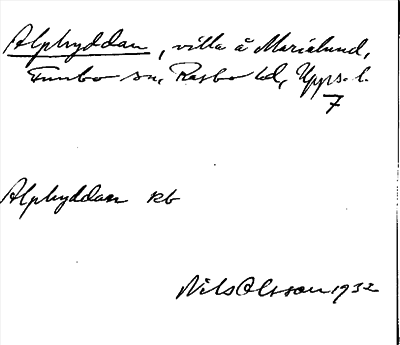 Alphyddan, villa å Marielund,
Funbo sn, Rasbo hd, Upps. l.
7
Alphyddan rb
Nils Olsson 1932